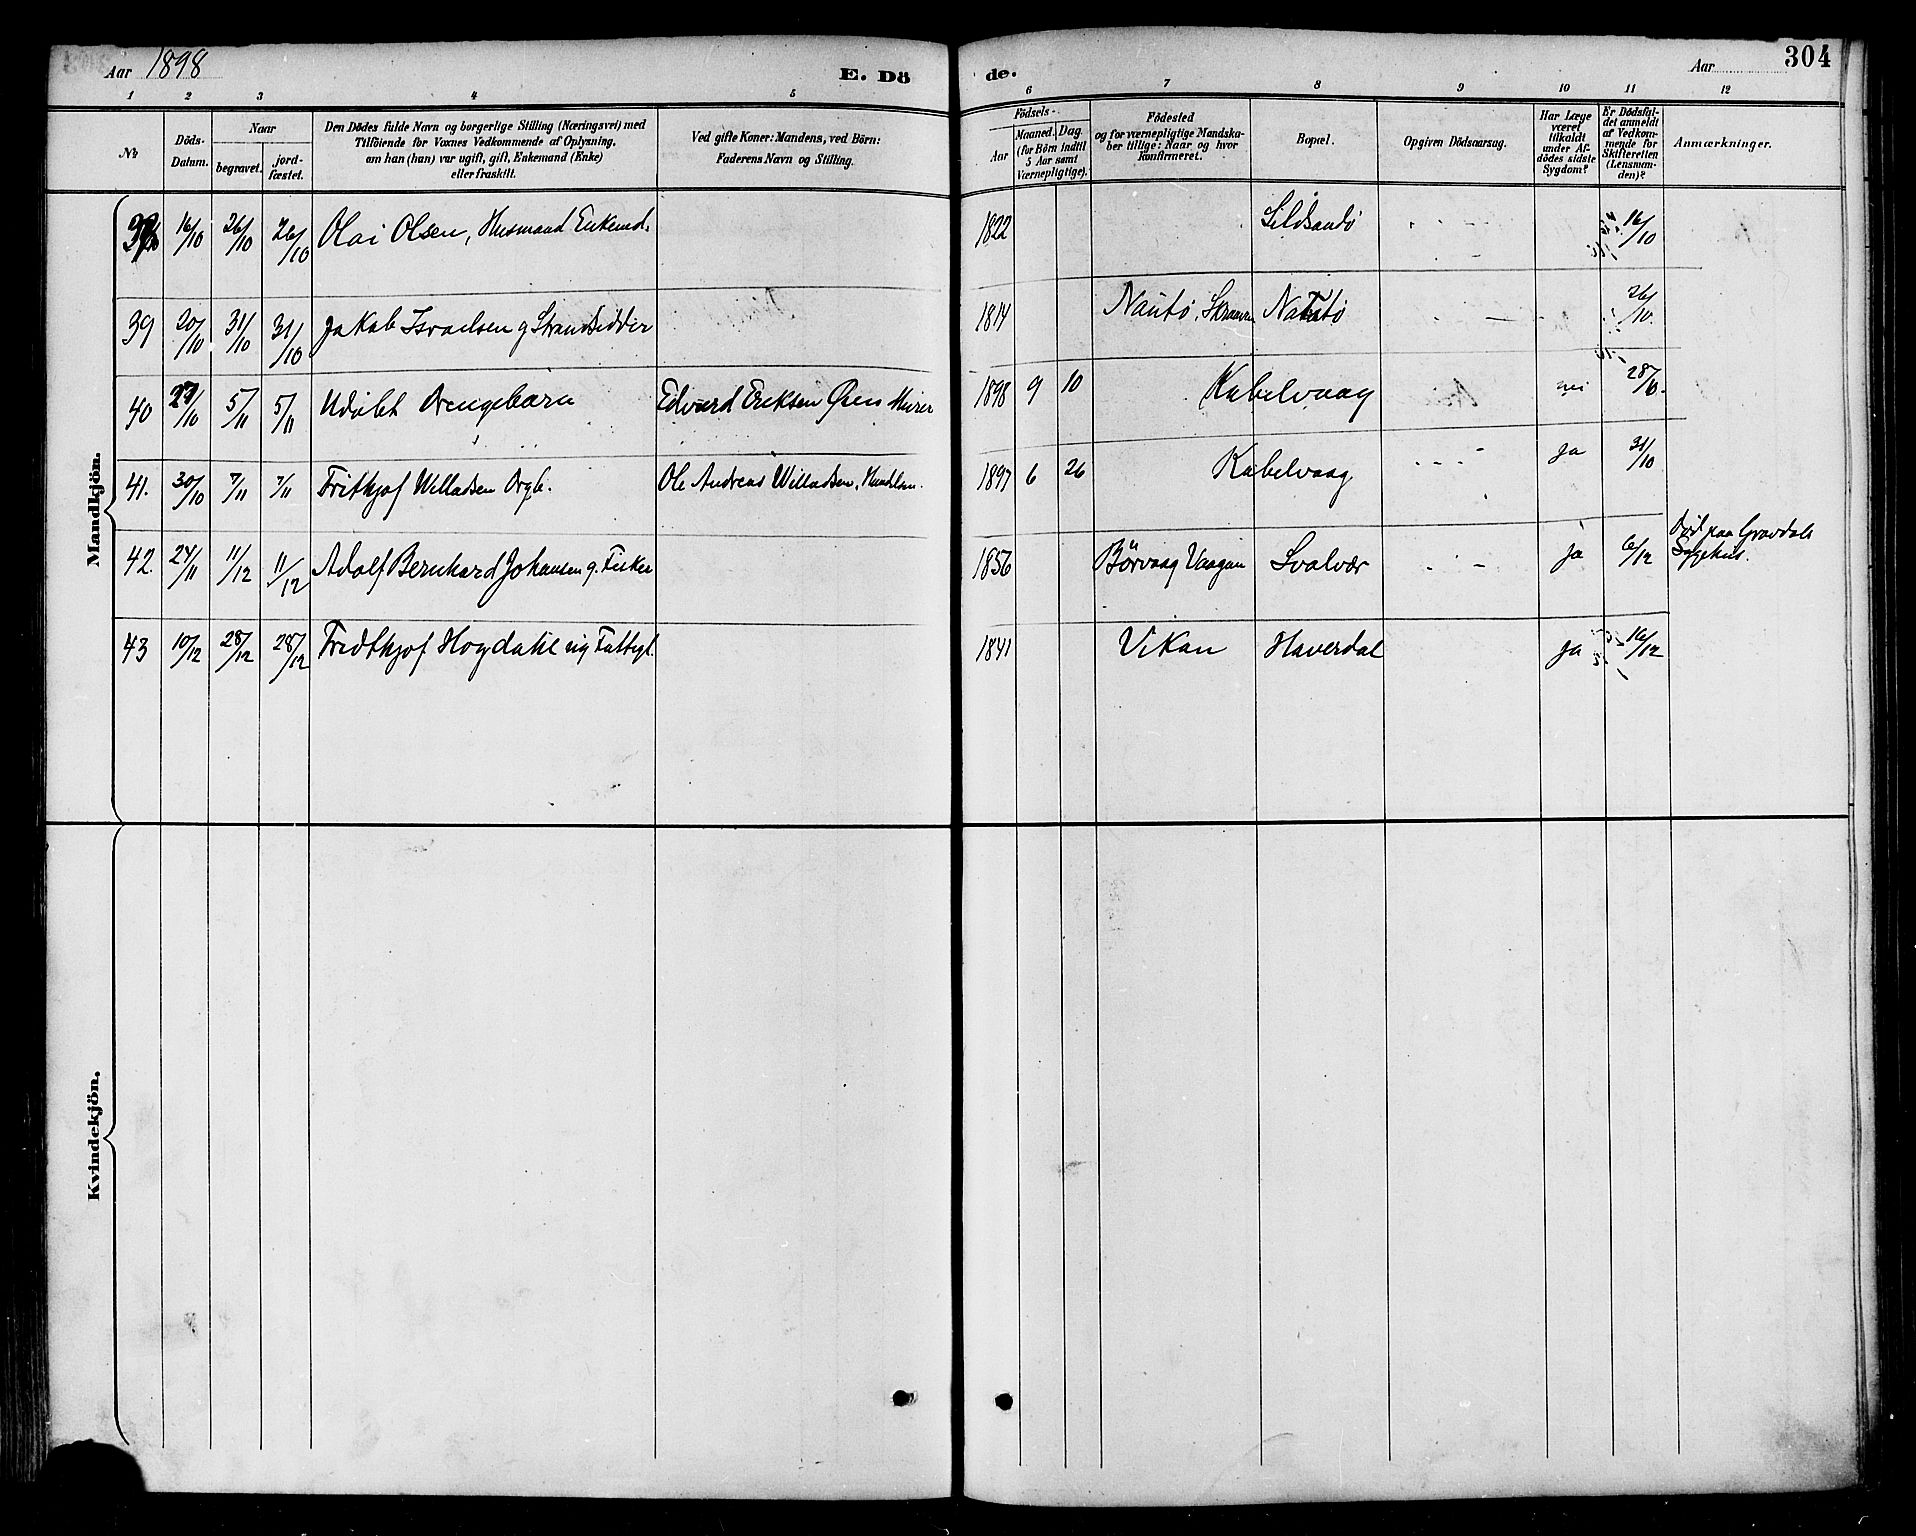 Aar 1898
E. Dö
de.
Aar
304
1 2 3 4 5 6 7 8 9 10 11 12
No
Döds-
Datum.
Naar
begravet.
jord-
fæstet.
Den Dödes fulde Navn og borgerlige Stilling (Næringsvei) med
Tilföiende for Voxnes Vedkommende af Oplysning,
om han (hun) var ugift, gift, Enkemand (Enke)
eller fraskilt.
Ved gifte Koner: Mandens, ved Börn:
Faderens Navn og Stilling.
Födsels-
Aar
Maaned. Dag.
(for Börn indtil
5 Aar samt
Værnepligtige).
Födested
og for værnepligtige Mandska-
ber tillige: Naar og hvor
konfirmeret.
Bopæl.
Opgiven Dödsaarsag.
Har Læge
været
tilkaldt
under Af-
dödes sidste
Sygdom?
Er Dödsfal-
det anmeldt
af Vedkom-
mende for
Skifteretten
(Lensman-
den)?
Anmærkninger.
Mandkjön.
16/10 26/10 26/10 Olai Olsen, Husmand Enkemd. 1822 Sildsandö 16/10
39 20/10 31/10 31/10 Jakob Israelsen g Strandsidder 1814 Nautö, Natö 26/10
40 27/10 5/11 5/11 Udöbt Drengebarn Edvard Eriksen Øien Murer 1898 9 10 Kabelvaag nei 28/10.
41. 30/10 7/11 7/11 Fritkjof Willadsen Drgb. Ole Andreas Willadsen, 1897 6 26 Kabelvaag ja 31/10
42. 24/11 11/12 11/12 Adolf Bernhard Johansen g. Fisker 1856 Börvaag Vaagan Svolvær ja 6/12 Död paa Gravdals
Sygehus.
43 10/12 28/12 28/12 Fridtkjof Hogdahl ug Fattigl. 1841 Vikan Haverdal ja 16/12
Kvindekjön.